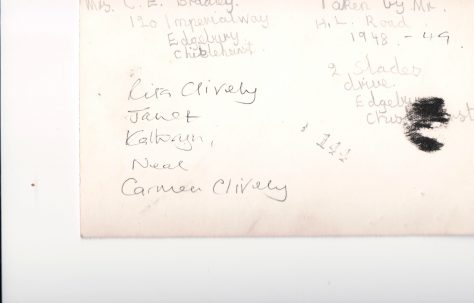 Mrs. C. E. Bradley.
120 Imperial way
Edgebury
Chislehurst.
Taken by Mr.
H. L. Road
1948. - 49.
2 Slades
drive.
Edgebury
Rita Clively
Janet
Kathryn,
Neal
Carmen Clively